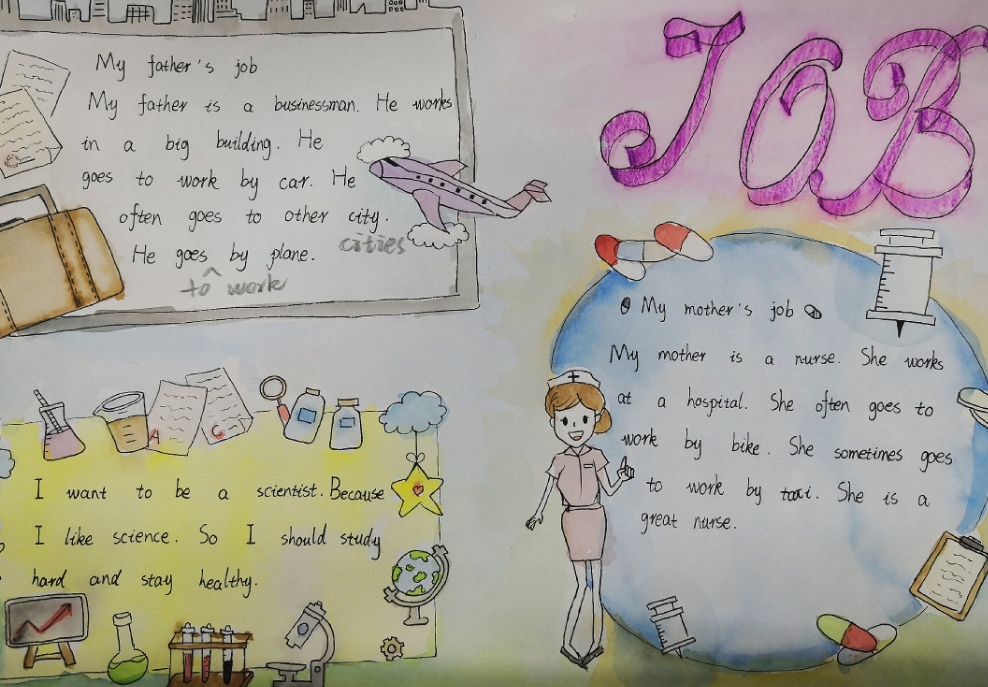 JOB
My father's job
My father is a businessman. He works
in a big building. He
goes to work by car. He
often goes to other city.
cities
He goes by plane.
^
to work
My mother's job
My mother is a nurse. She works
at a hospital. She often goes to
work by bike. She sometimes goes
to work by taxi. She is a
great nurse.
A
C
I want to be a scientist. Because
I like science. So I should study
hard and stay healthy.